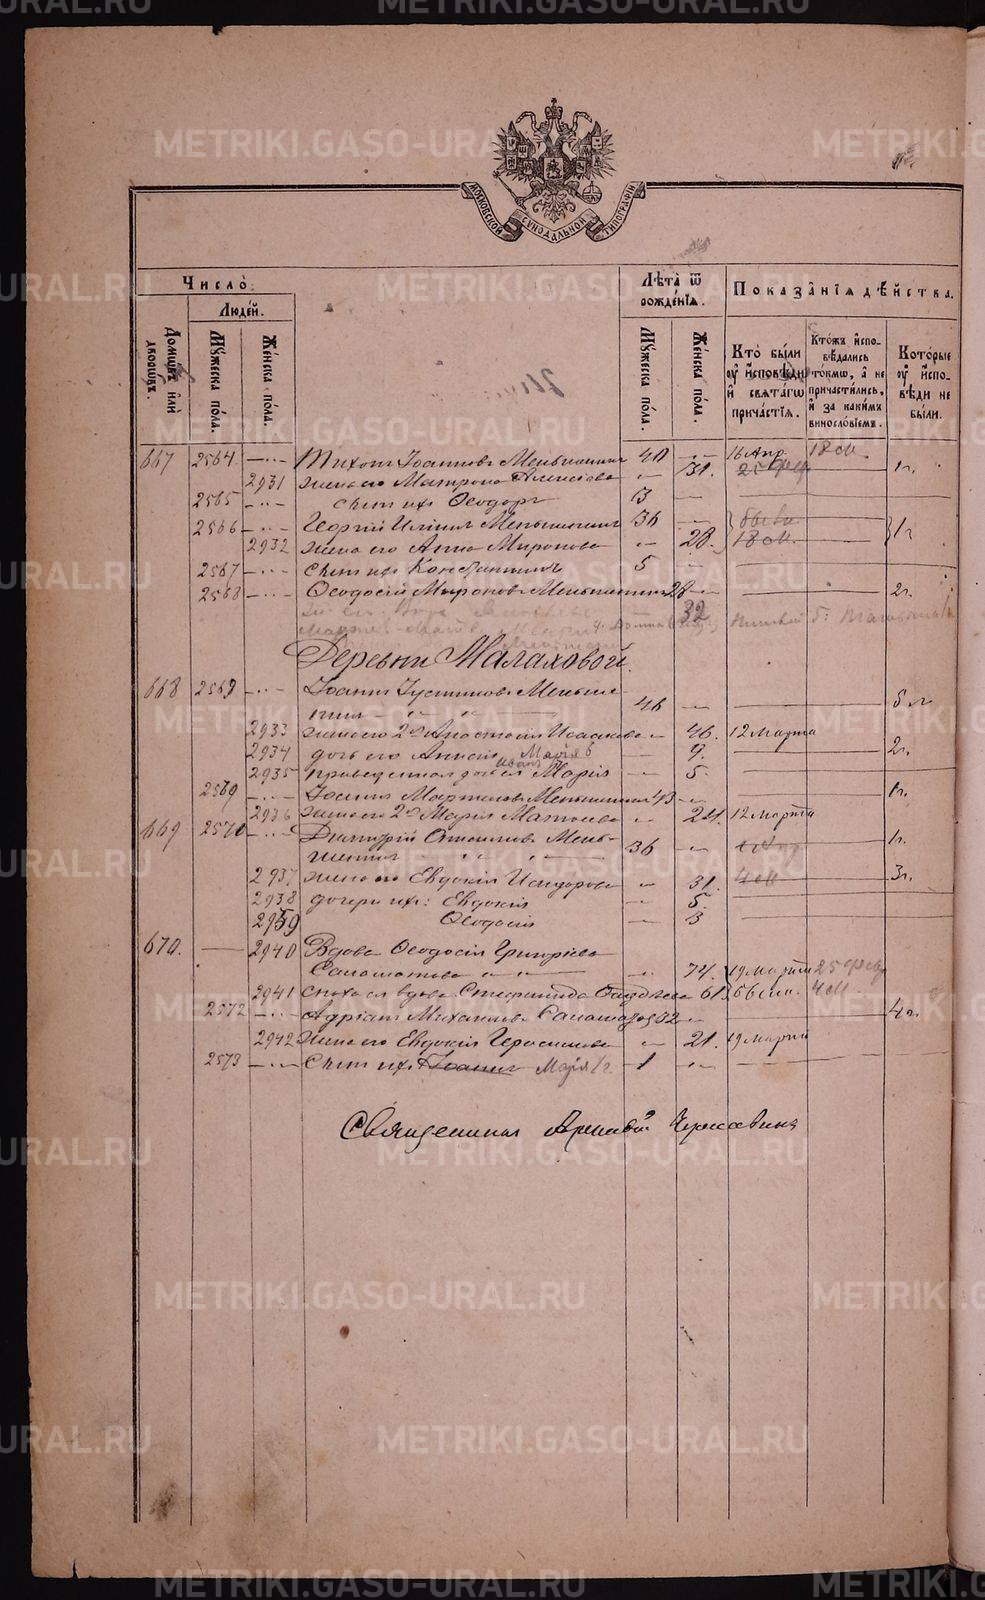 МОСКОВСКОЙ СѴНОДАЛЬНОЙ ТИПОГРАФІИ
Число̀.
Людей.
Домѡвъ или дворѡвъ.
Мꙋжеска пола.
Женска пола.
Лѣта ѿ рожденїѧ.
Мꙋжеска пола.
Женска пола.
Показанїѧ дѣйства.
Кто были ᲂу исповѣди и свѧтагѡ причастїѧ.
Ктожъ исповѣдались токмѡ, а не причастились, и за какимъ винословїемъ.
Которые ᲂу исповѣди не были.
667 2564 Тихонъ Іоанновъ Меньшенинъ 40 16 Апр. 18 м.
2931 жена его Матрона Алексіева 31. 25 фев 1 г.
2565 сынъ ихъ Ѳеодоръ 13
2566 Георгій Меньшенинъ 36 были 1 г
2932 жена его Анна Миронова 28. 18 м.
2567 сынъ ихъ Константинъ 5
2568 Ѳеодосій Мироновъ Меньшенинъ 28 2 г.
32
Деревни Малаховой.
668 2569 Іоаннъ Іустиновъ Меньше-
нинъ 46 5 л
2933 жена его 2я Анастасія Исаакова 46. 12 марта
2934 дочь его Анисія Марія 6 9. 2 г.
2935 приведенная дочь ея Марія 5.
2569 Іоаннъ Мартиновъ Меньшенинъ 43 1 г.
2936 жена его 2я Марія Матвіева 24. 12 марта
669 2570 Димитрій Меньше-
шенинъ 36 Апр 1 г.
2937 жена его Евдокія Исидорова 31. 4 м 3 г.
2938 дочери ихъ: Евдокія 5.
2939 Ѳеодосія 3
670. 2940 Вдова Ѳеодосія Григоріева
Саломатова 74. 19 марта 25 фев
2941 сноха ея вдова Стефанида 61. 4 м
2572 Адріанъ Михаиловъ Саломатов 32 4 г.
2942 жена его Евдокія Герасимова 21. 19 марта
2573 сынъ ихъ Іоаннъ Марія 1 г 1
Священникъ Аркадій
METRIKI.GASO-URAL.RU